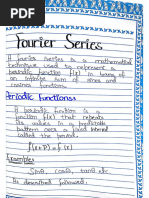 Fourier Series
A fourier series is a mathematical
technique used to represent a
periodic function f(x) in terms of
an infinite sum of sines and
cosines functions.
Periodic Functions:
A periodic function is a
function f(x) that repeats
its values in a predictable
pattern over a fixed interval
called the period.
f(x+p) = f(x)
Examples
Sinθ, cosθ, tanθ etc